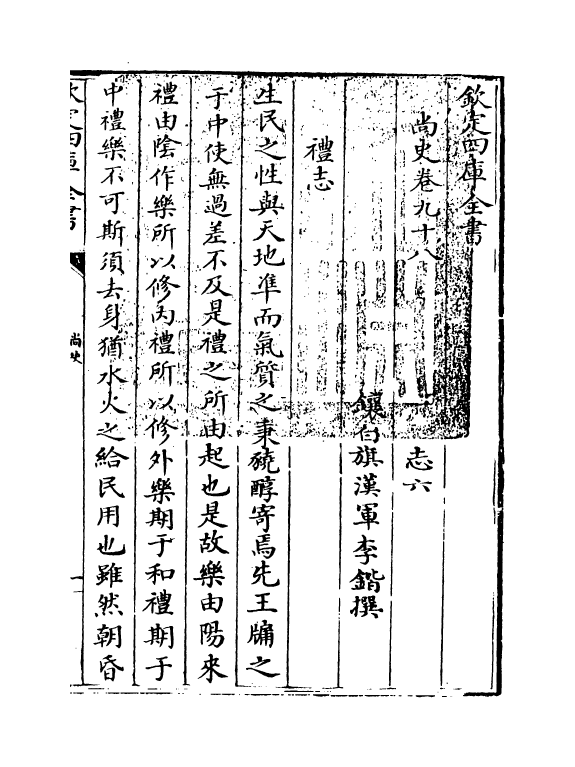 欽定四庫全書
尚史卷九十八　志六
鑲白旗漢軍李鍇撰
禮志
生民之性與天地準而氣質之秉澆醇寄焉先王牖之
于中使無過差不及是禮之所由起也是故樂由陽來
禮由陰作樂所以修内禮所以修外樂期于和禮期于
中禮樂不可斯須去身猶水火之給民用也雖然朝昏
欽定四庫全書
尚史
一